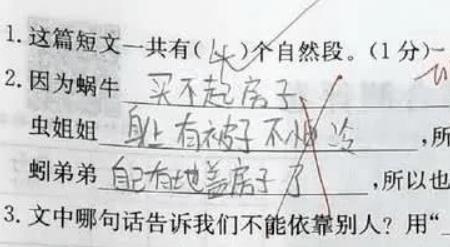 1. 这篇短文一共有( )个自然段。(1分)
2. 因为蜗牛 买不起房子
虫姐姐 身上有被子不怕冷 ,所
蚓弟弟 自己有地盖房子了 ,所以也
3. 文中哪句话告诉我们不能依靠别人? 用“